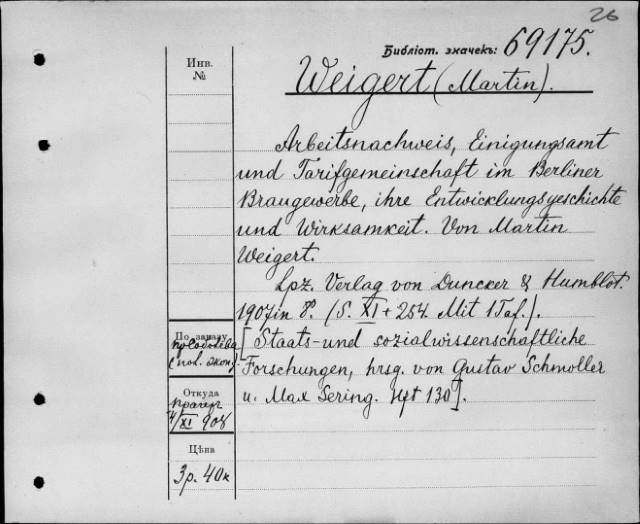 26
Библіот. значекъ: 69175.
Инв.
№
Weigert (Martin).
Arbeitsnachweis, Einigungsamt
und Tarifgemeinschaft im Berliner
Braugewerbe, ihre Entwicklungsgeschichte
und Wirksamkeit. Von Martin
Weigert.
Lpz. Verlag von Duncker & Humblot.
1907 in 8°. (S. XI + 254. Mit 1 Taf.).
[Staats- und sozialwissenschaftliche
Forschungen, hrsg. von Gustav Schmoller
u. Max Sering. Hft 130].
По заказу
(пол. экон.)
Откуда
4/XI 908
Цѣна
3 р. 40 к